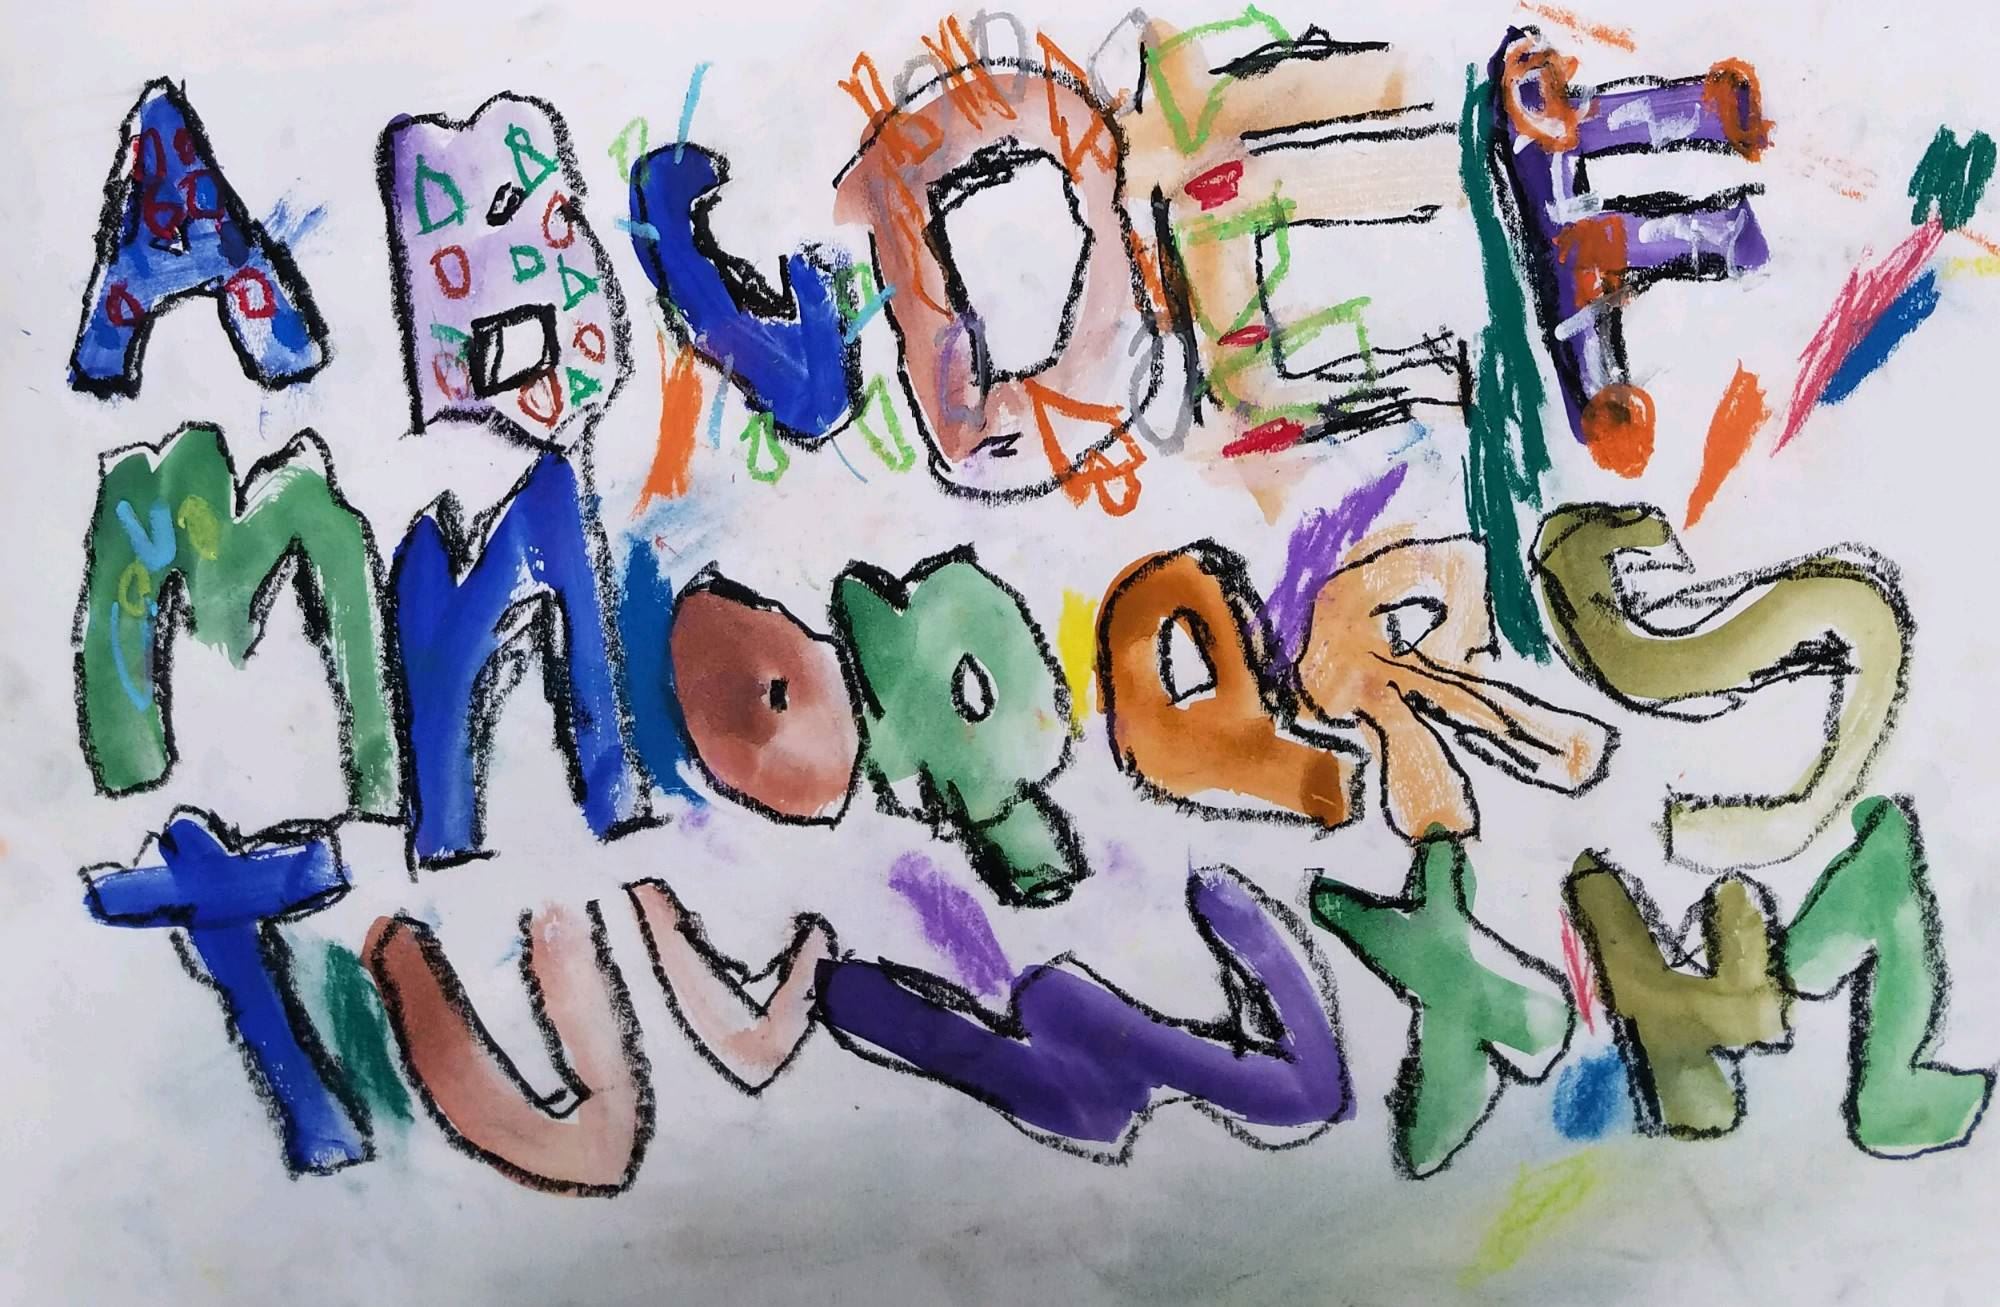 ABCDEF
MNOPQRS
TUVWXYZ